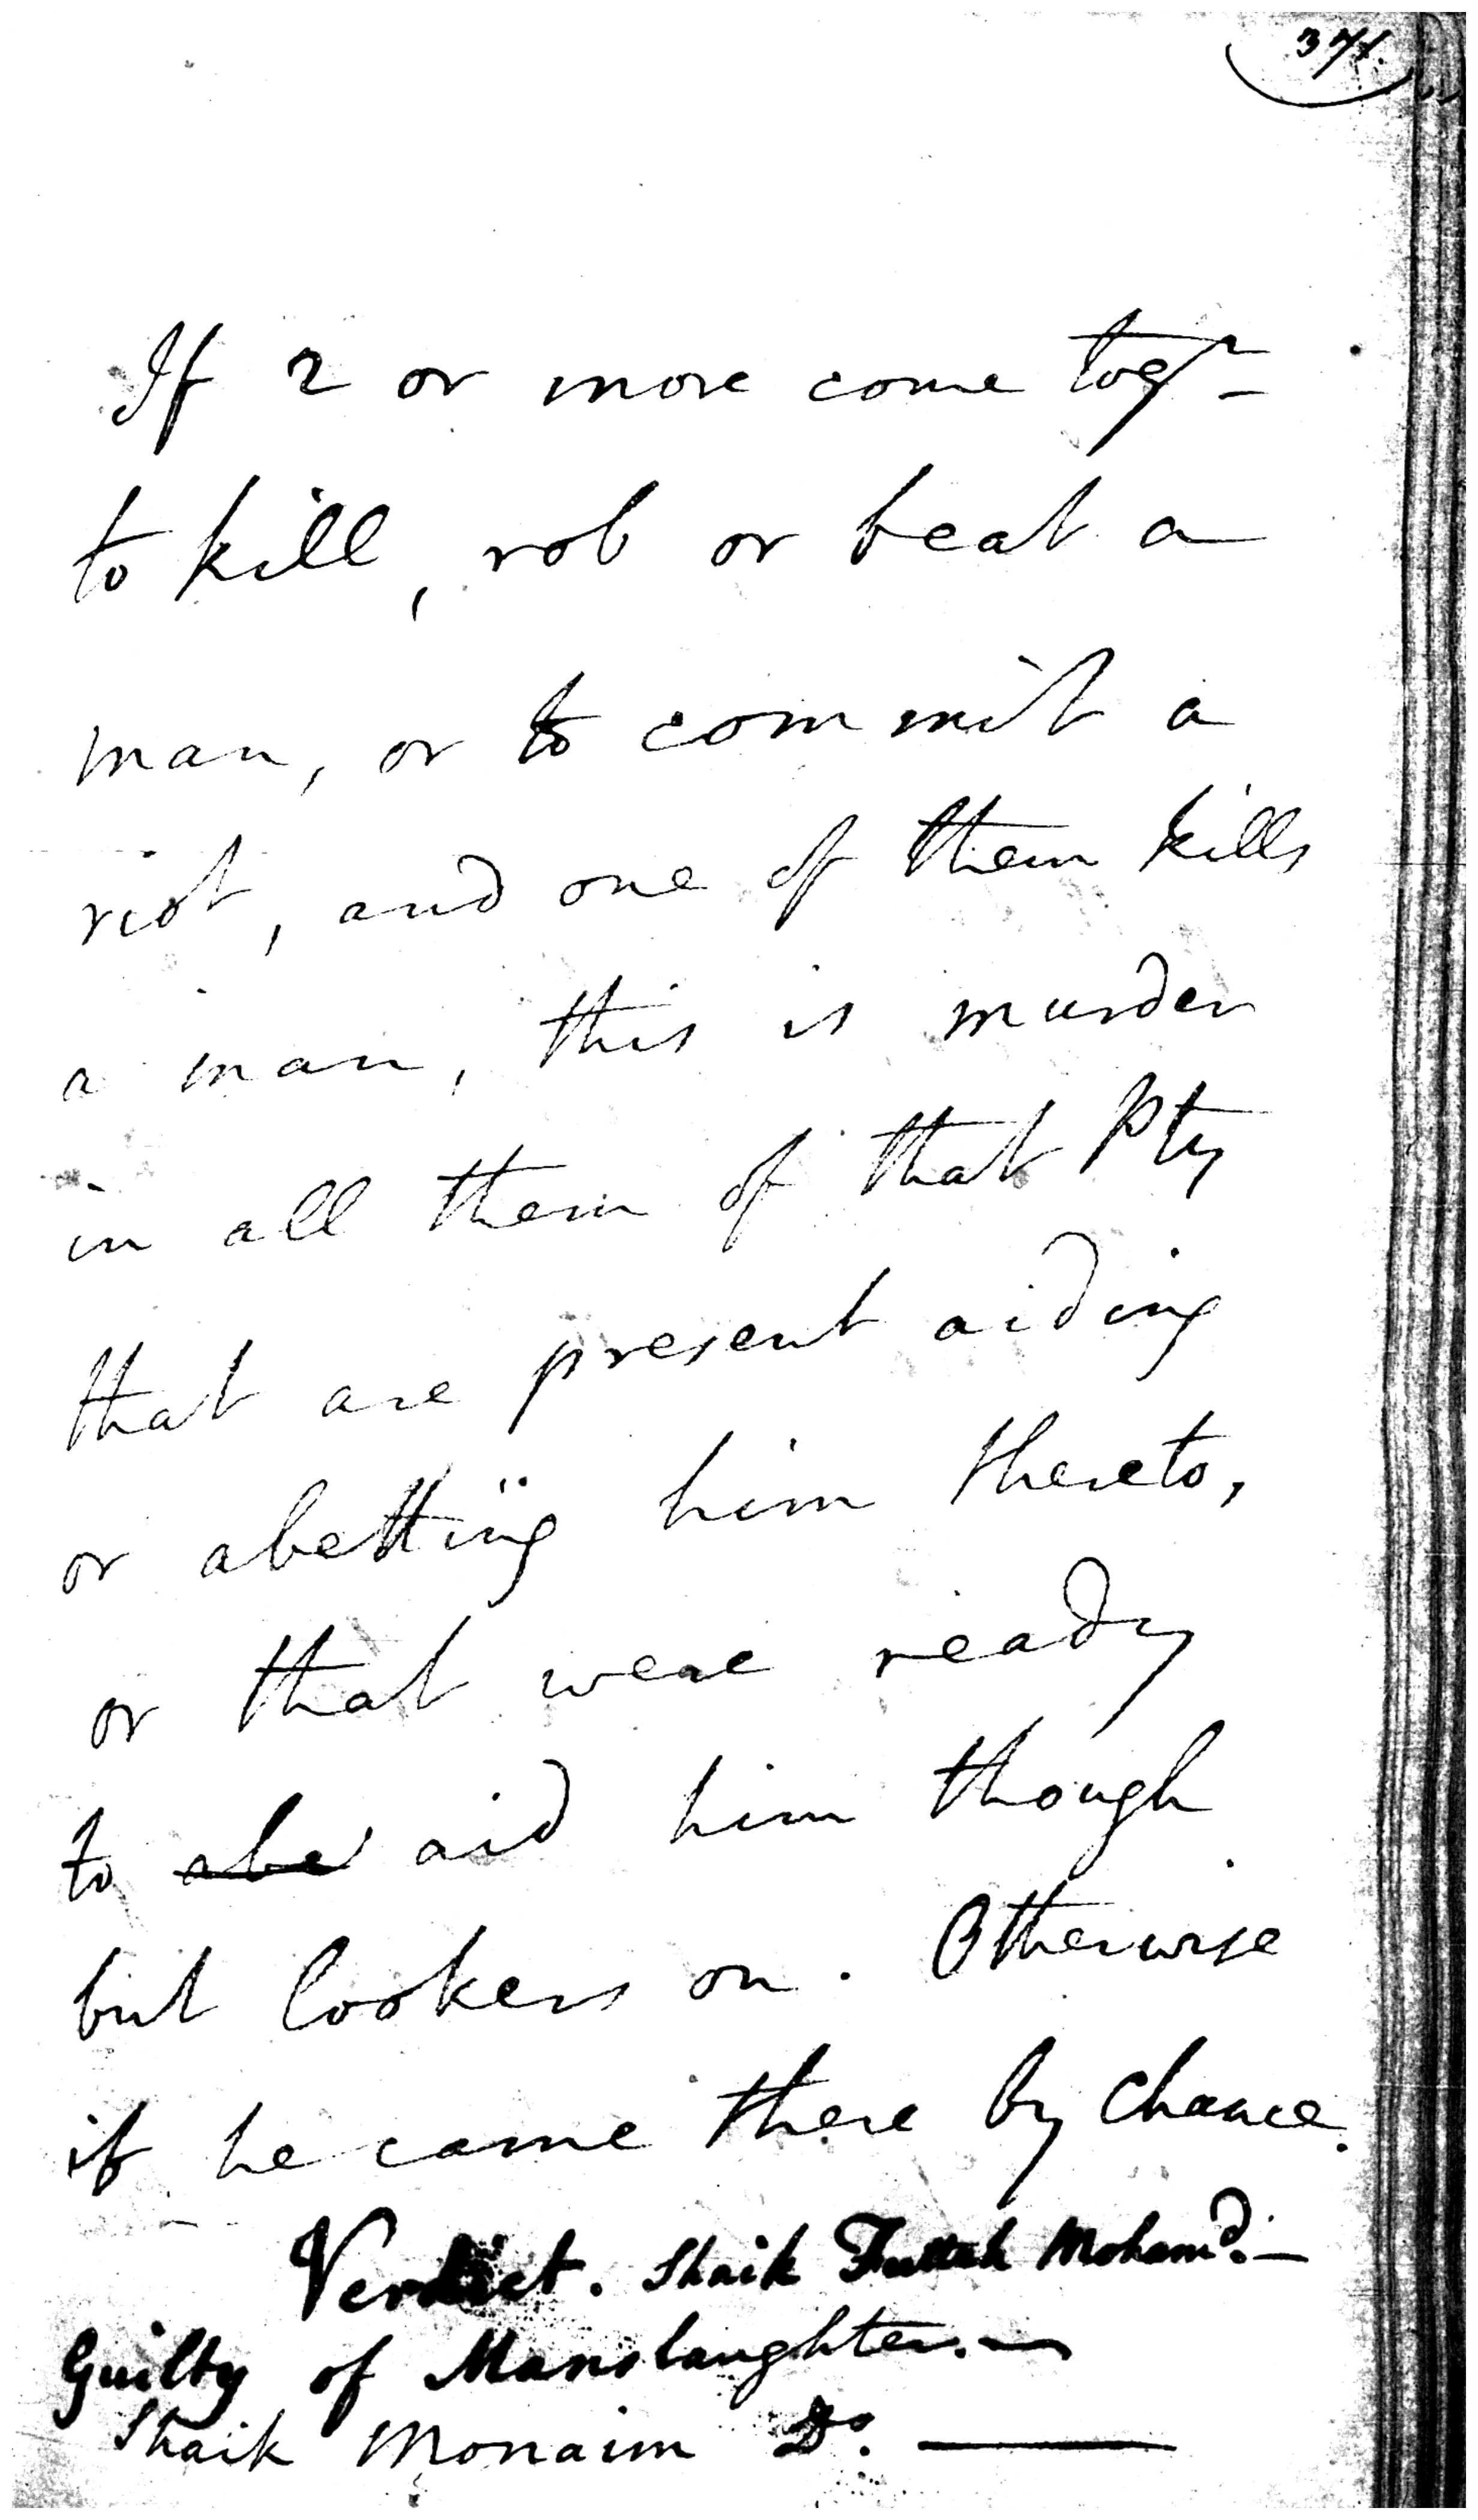 If 2 or more come togr
to kill, rob or beat a
man, or to commit a
riot, and one of them kills
a man, this is murder
in all them of that Pty
that are present aiding
or abetting him thereto,
or that were ready
to abe aid him though
but lookers on. Otherwise
if he came there by Chance.
Verdict. Shaik Futtah Mohamd. —
Guilty of Manslaughter. —
Shaik Monaim Do. —